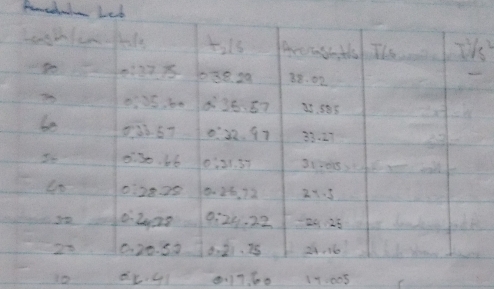 Pendulum Lab
Length/cm t₁/s t₂/s Average t/s T/s T²/s²
80 0:37.75 0:38.29 38.02
70 0:35.60 0:35.57 35.585
60 0:33.57 0:32.97 33.27
50 0:30.66 0:31.37
40 27.5
30 0:24.28 0:24.22 24.25
20 0:20.57 0:21.75 21.16
10 0:17.60 17.005